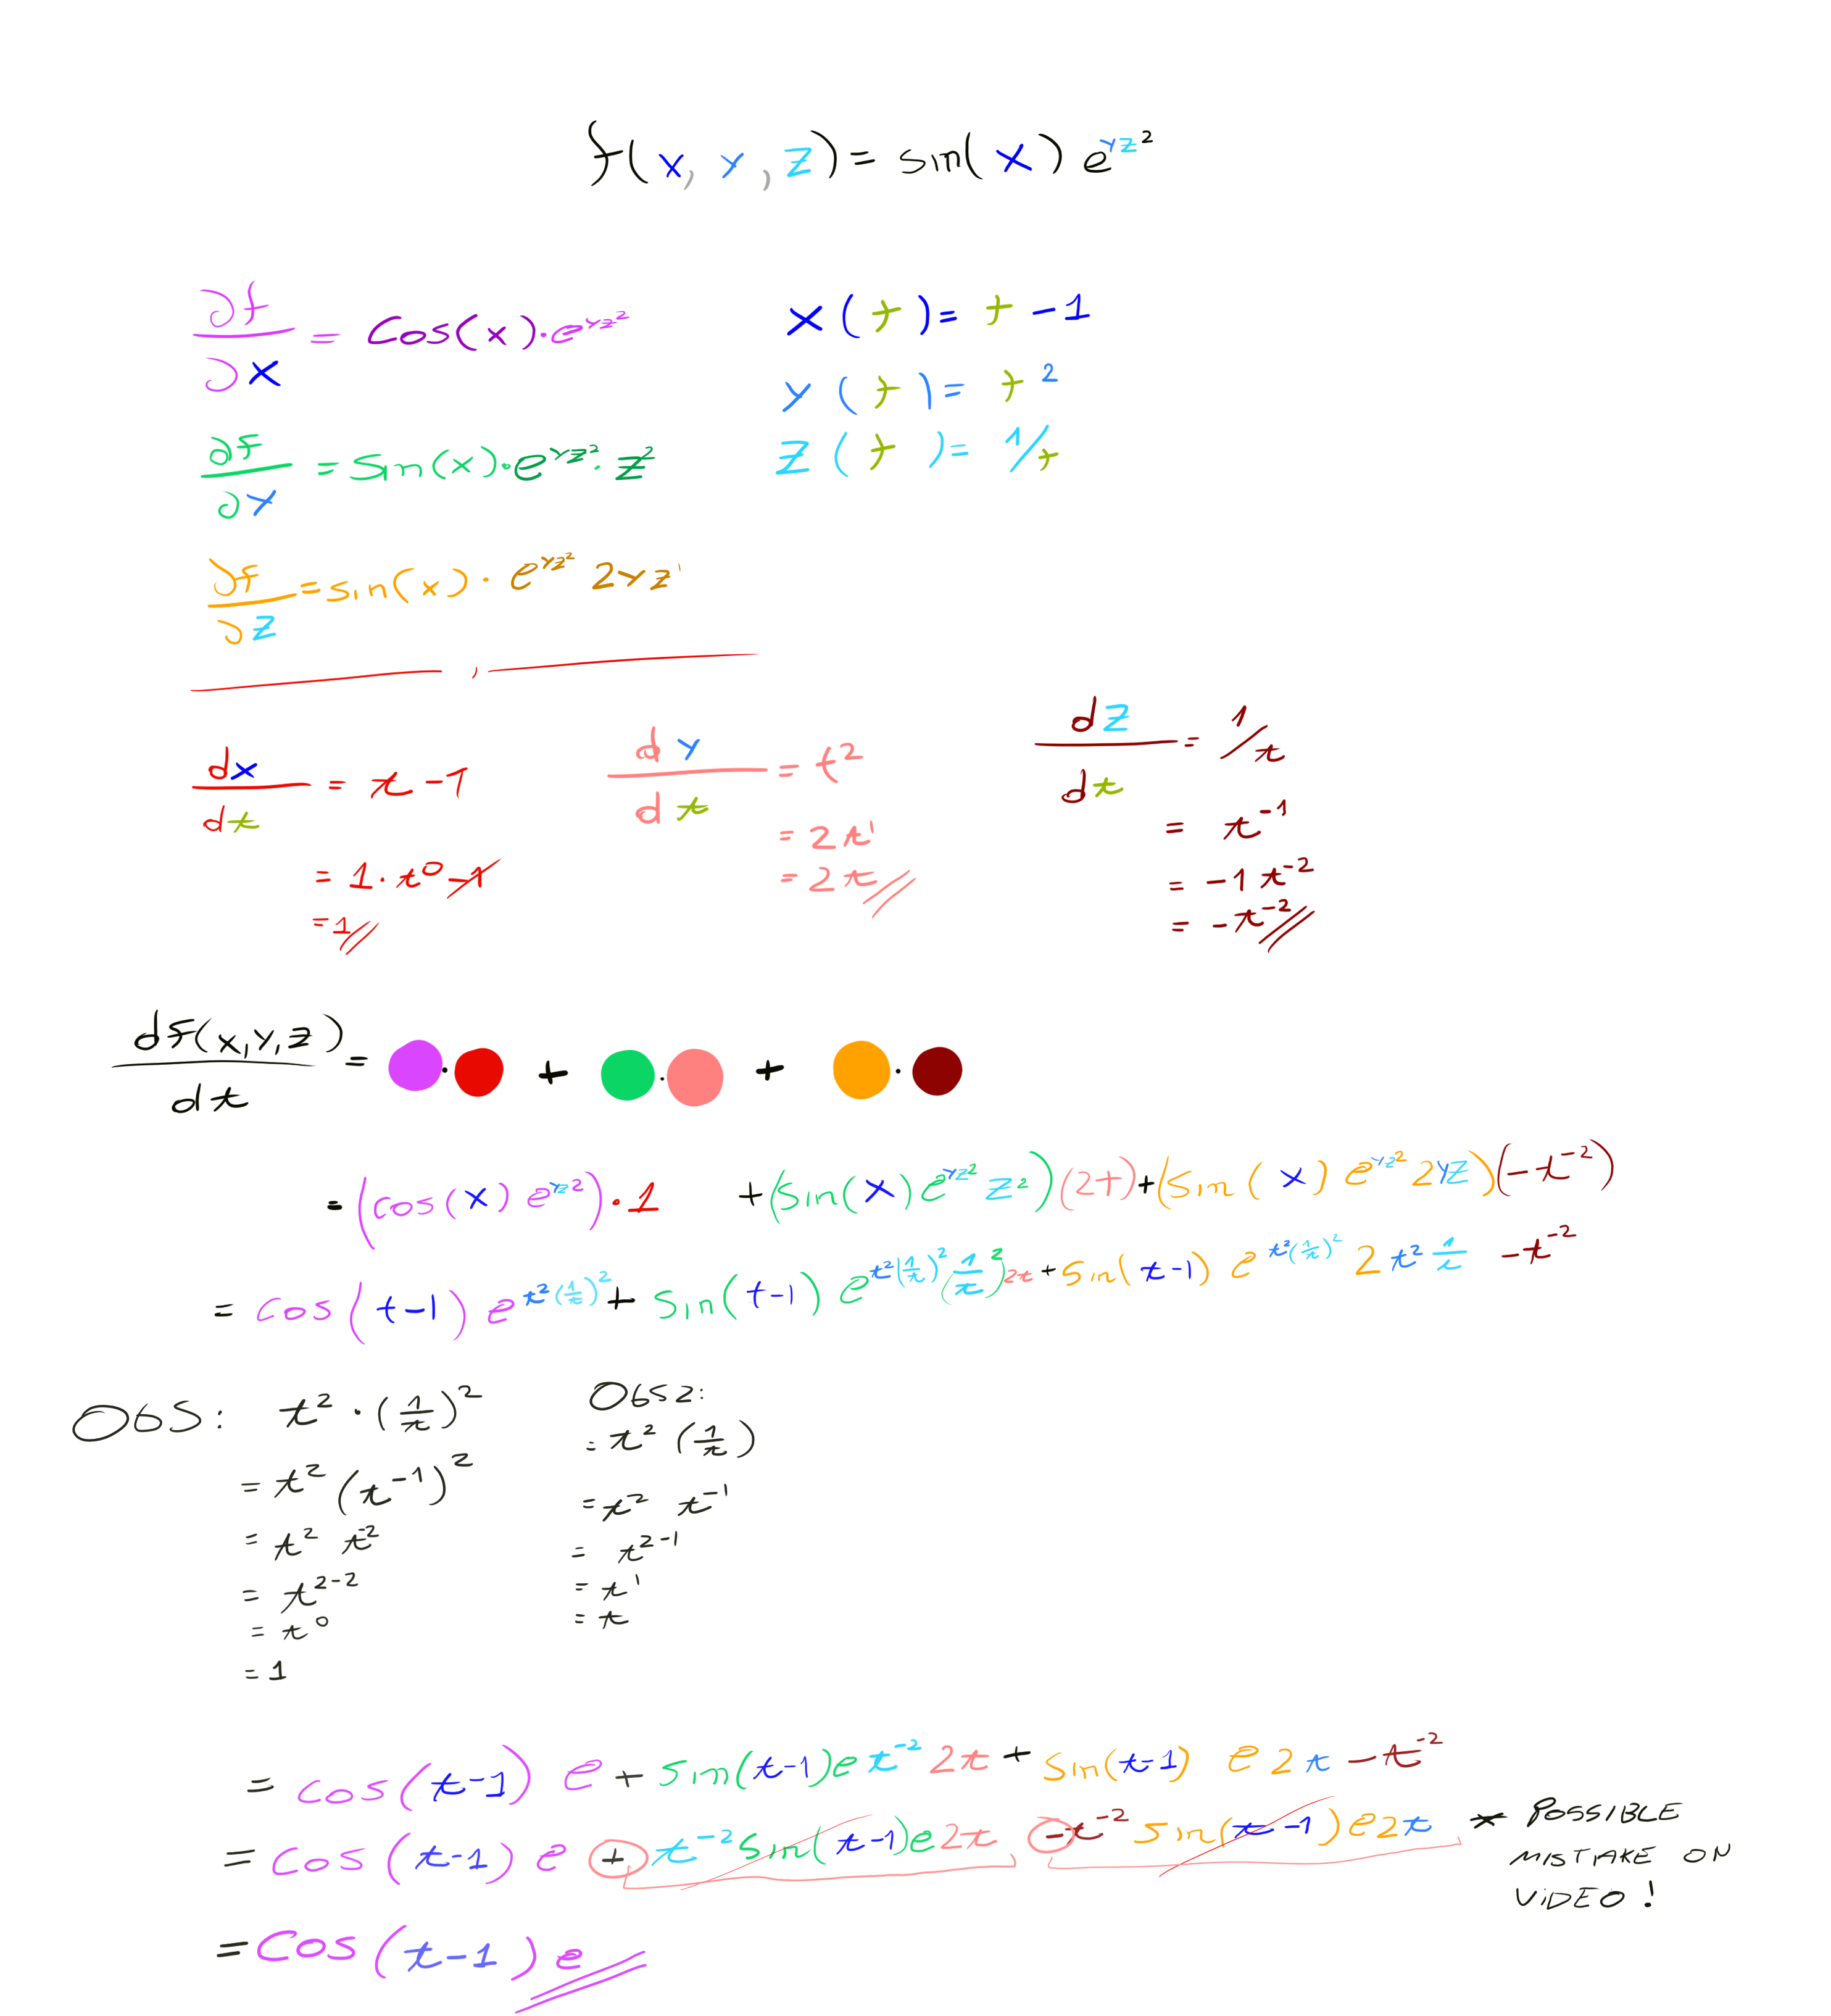 f(x, y, z) = sin(x) e^{yz^2}
∂f/∂x = cos(x)·e^{yz^2}
x(t) = t-1
y(t) = t^2
z(t) = 1/t
∂f/∂y = sin(x)·e^{yz^2}·z^2
∂f/∂z = sin(x)·e^{yz^2} 2yz^1
dx/dt = t-1
= 1·t^0-1
= 1
dy/dt = t^2
= 2t^1
= 2t
dz/dt = 1/t
= t^{-1}
= -1t^{-2}
= -t^{-2}
df(x,y,z)/dt = · + · + ·
= (cos(x) e^{yz^2})·1 + (sin(x) e^{yz^2} z^2)(2t) + (sin(x) e^{yz^2} 2yz)(-t^{-2})
= cos(t-1) e^{t^2(1/t)^2} + sin(t-1) e^{t^2(1/t)^2} (1/t)^2 2t + sin(t-1) e^{t^2(1/t)^2} 2 t^2 1/t -t^{-2}
Obs: t^2·(1/t)^2
= t^2 (t^{-1})^2
= t^2 t^{-2}
= t^{2-2}
= t^0
= 1
Obs2:
= t^2 (1/t)
= t^2 t^{-1}
= t^{2-1}
= t^1
= t
= cos(t-1) e + sin(t-1) e t^{-2} 2t + sin(t-1) e 2t -t^{-2}
= cos(t-1) e + t^{-2} sin(t-1) e 2t -t^{-2} sin(t-1) e 2t
* POSSIBLE
MISTAKE ON
VIDEO!
= cos(t-1) e